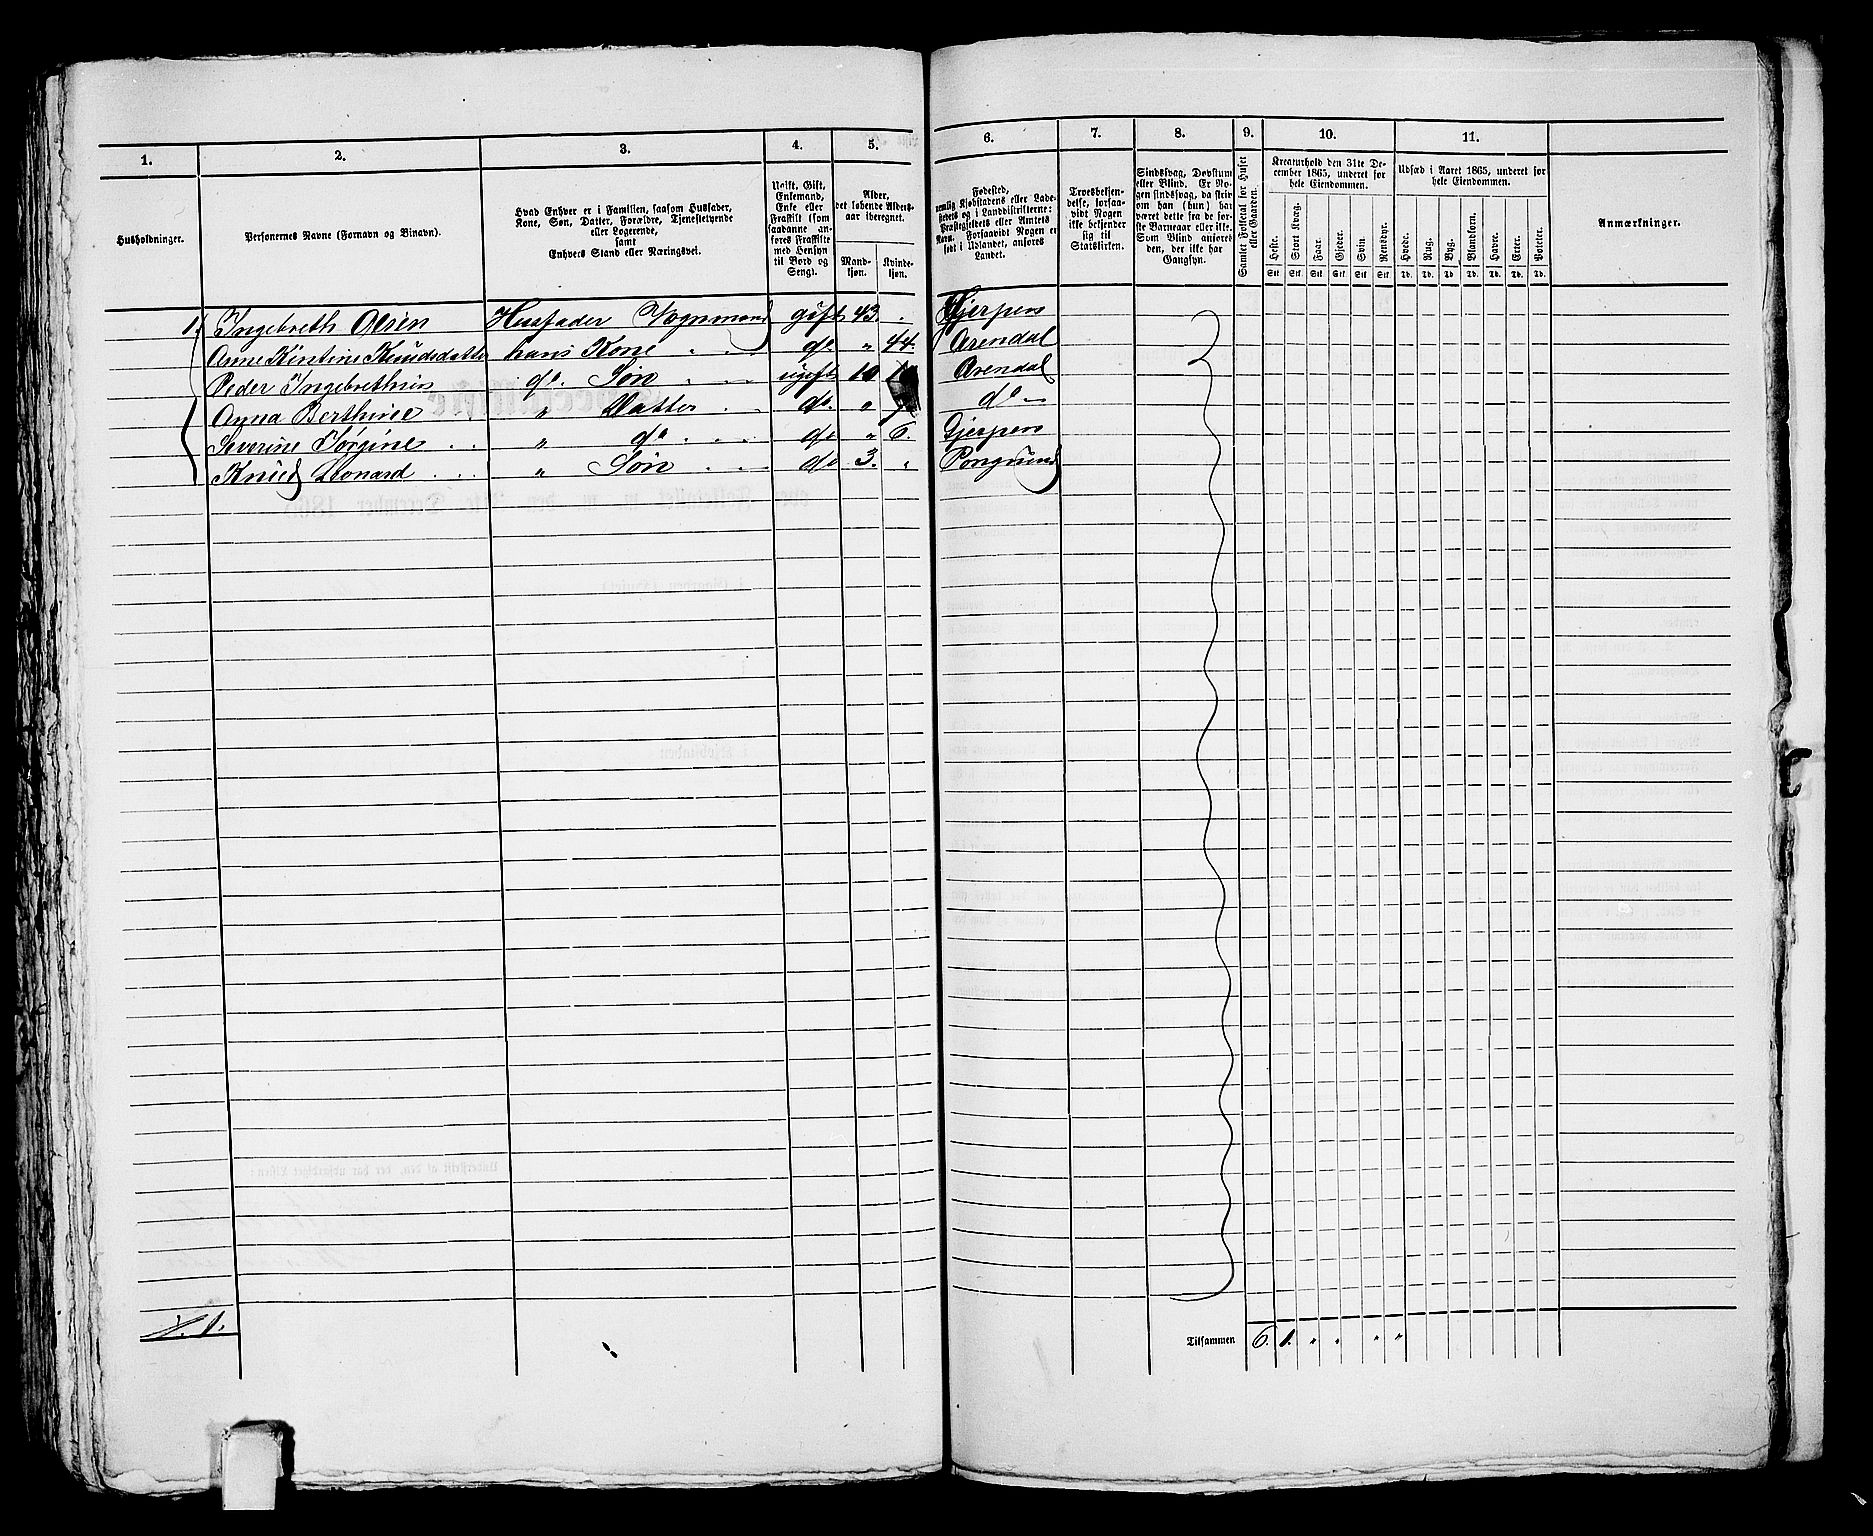 1. 2. 3. 4. 5. 6. 7. 8. 9. 10. 11.
Husholdninger.
Personernes Navne (Fornavn og Binavn).
Hvad Enhver er i Familien, saasom Husfader,
Kone, Søn, Datter, Forældre, Tjenestetyende
eller Logerende,
samt
Enhvers Stand eller Næringsvei.
Ugift, Gift,
Enkemand,
Enke eller
Fraskilt (som
saadanne an-
føres Fraskilte
med Hensyn
til Bord og
Seng).
Alder,
det løbende Alders-
aar iberegnet.
Mand-
kjøn.
Kvinde-
kjøn.
Fødested,
nemlig Kjøbstadens eller Lade-
stedets og i Landdistrikterne:
Præstegjeldets eller Amtets
Navn. Forsaavidt Nogen er
født i Udlandet, anføres
Landet.
Troesbekjen-
delse, forsaa-
vidt Nogen
ikke bekjender
sig til
Statskirken.
Sindssvag, Døvstum
eller Blind. Er No-
gen sindssvag, da skriv
om han (hun) har
været dette fra de før-
ste Barneaar eller ikke.
Som Blind anføres
den, der ikke har
Gangsyn.
Samlet Folketal for Huset
eller Gaarden.
Kreaturhold den 31te De-
cember 1865, underet for
hele Eiendommen.
Heste. Stort Kvæg. Faar. Gjeder. Svin. Rensdyr.
Stk Stk Stk Stk Stk Stk
Udsæd i Aaret 1865, underet for
hele Eiendommen.
Hvede. Rug. Byg. Blandkorn. Havre. Erter. Poteter.
Td. Td. Td. Td. Td. Td. Td.
Anmærkninger.
1. Ingebreth Olsen Husfader Vognmand gift 43. Gjerpen
Anne Kirstine Knudsdatter hans Kone do " 44. Arendal
Peder Ingebrethsen do. Søn ugift 10 Arendal
Anna Berthine " Datter do. " do
Severine Jørgine " do do " 6. Gjerpen
Knud Leonard " Søn do 3. " Porsgrund
1.
Tilsammen 6. 1. " " " "